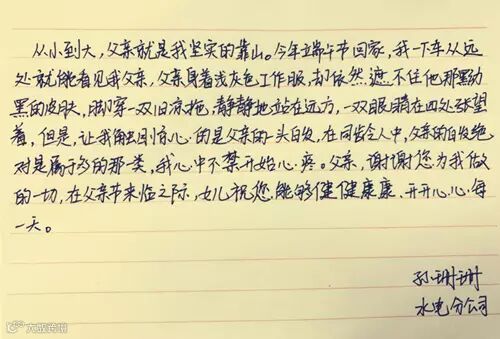 从小到大，父亲就是我坚实的靠山。今年端午节回家，我一下车从远
处就能看见我父亲，父亲身着浅灰色工作服，却依然遮不住他那黝
黑的皮肤，脚穿一双旧凉拖，静静地站在远方，一双眼睛在四处张望
着，但是，让我触目惊心的是父亲的一头白发，在同龄人中，父亲的白发绝
对是属于多的那一类，我心中不禁开始心疼。父亲，谢谢您为我做
的一切，在父亲节来临之际，女儿祝您能够健健康康、开开心心每
一天。
孙珊珊
水电分公司